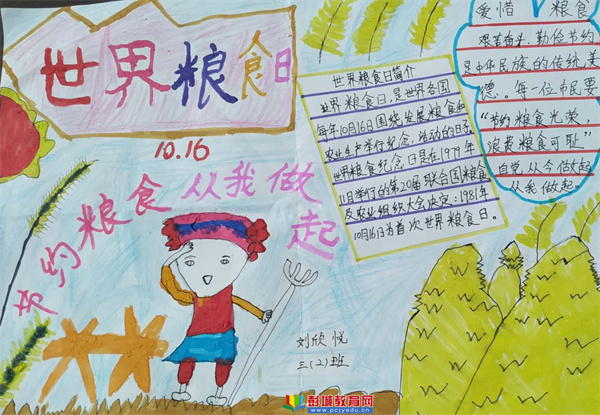 世界粮食日
10.16
节约粮食从我做起
世界粮食日简介
世界粮食日,是世界各国
每年10月16日围绕发展粮食和
农业生产举行纪念活动的日子
世界粮食纪念日是在1979年
11月举行的第20届联合国粮食
及农业组织大会决定:1981年
10月16日为首次世界粮食日。
爱惜 粮食
艰苦奋斗,勤俭节约
是中华民族的传统美
德。每一位市民要
“节约粮食光荣,
浪费粮食可耻”
自觉从今做起
从我做起。
刘欣悦
三(2)班
彭城教育网
www.pcjyedu.cn